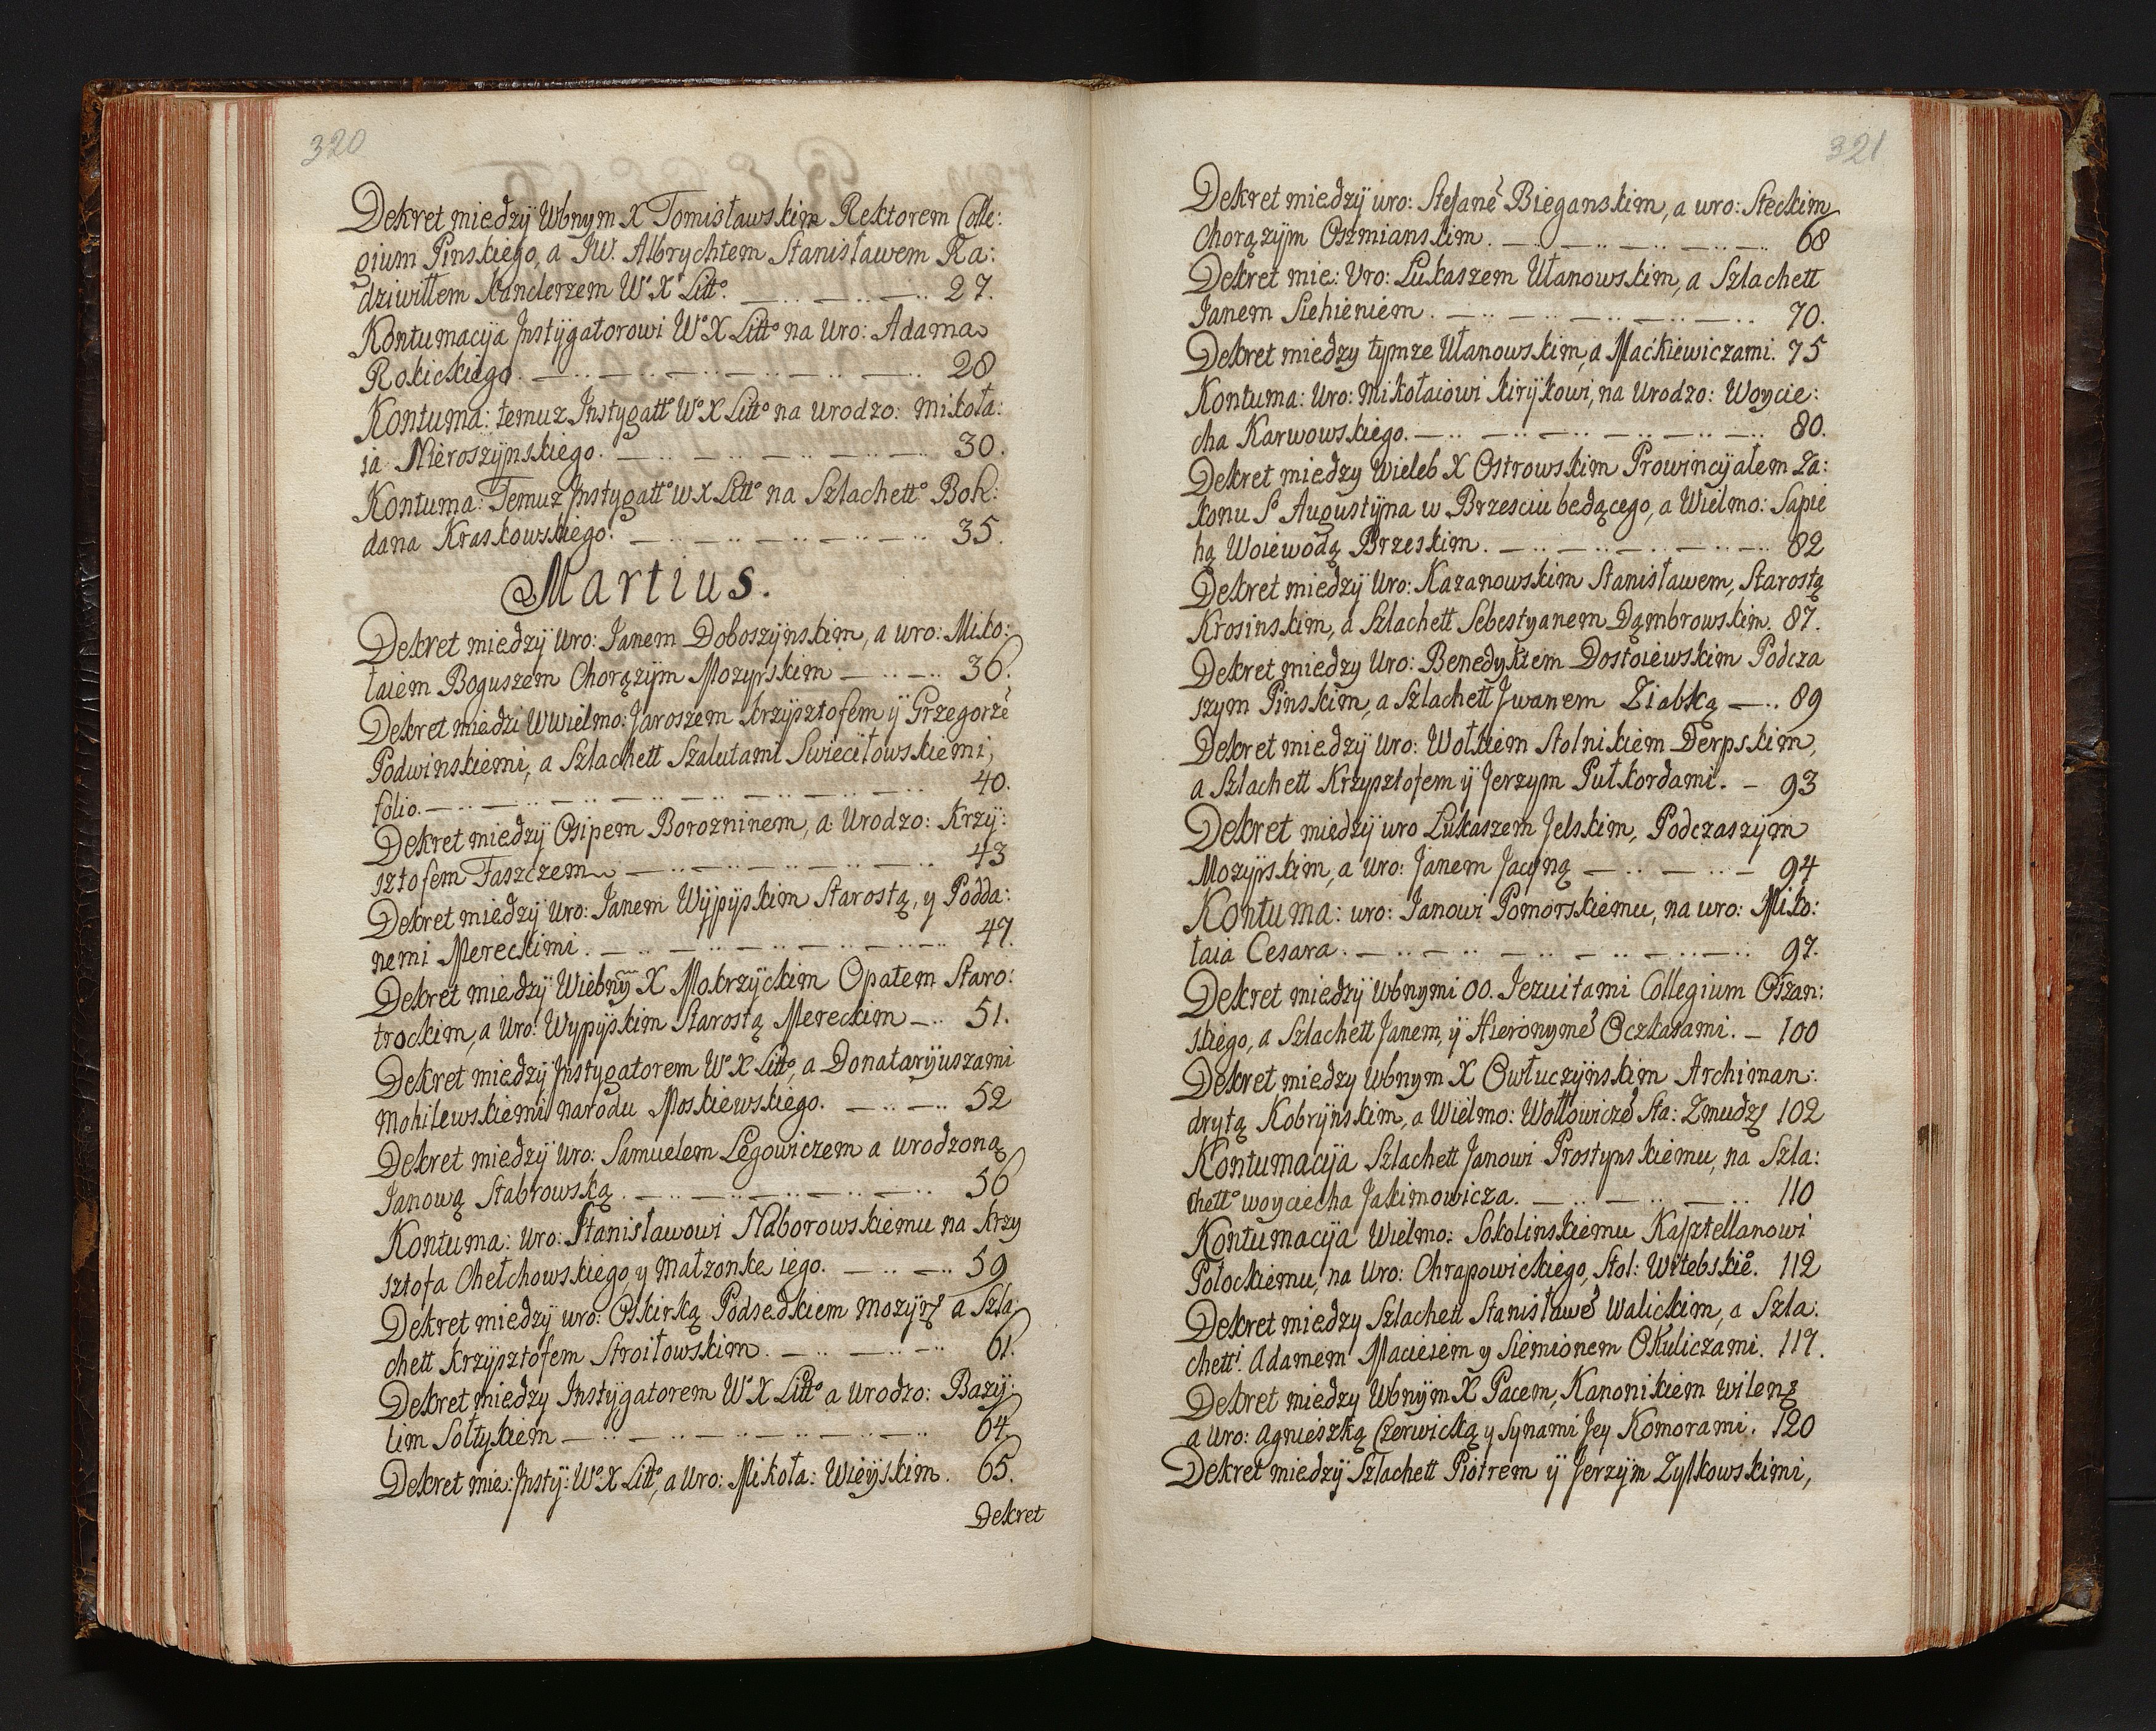 320
Dekret miedzÿ Wbnym X Tomisławskim Rektorem Colle:
gium Pinskiego, a JW. Albrychtem Stanisławem Ra:
dziwiłłem Kanclerzem W° X° Litt°. 27.
Kontumacÿa Jnstÿgatorowi W° X Litt° na Uro: Adama
Rokickiego. 28
Kontuma: temuz Jnstygatt° W° X Litt° na urodzo: Mikoła:
ia Nieroszÿnskiego. 30.
Kontuma: Temuz Jnstygatt° w X Litt° na Szlachett° Boh:
dana Kraskowskiego. 35.
Martius.
Dekret miedzÿ Uro: Janem Doboszÿnskim, a uro: Miko:
łaiem Boguszem Chorązÿm Mozyrskim 36.
Dekret miedzi Wwielmo: Jaroszem Krzÿsztofem ÿ Grzegorzē
Podwinskiemi, a Szlachett Szalutami Swieciłowskiemi,
folio. 40.
Dekret miedzÿ Osipem Borozninem, a Urodzo: Krzÿ:
sztofem Faszczem 43
Dekret miedzÿ Uro: Janem Wÿpÿskim Starostą, y Podda:
nemi Mereckimi. 47.
Dekret miedzÿ Wiebnÿ X Mokrzÿckim Opatem Staro:
trockim, a Uro: Wypÿskim Starostą Mereckim 51.
Dekret miedzÿ Jnstygatorem W° X Litt°, a Donatarÿuszami
Mohilewskiemi narodu Moskiewskiego. 52
Dekret miedzÿ Uro: Samuelem Legowiczem a urodzoną
Janową Stabrowską. 56
Kontuma: Uro: Stanisławowi Naborowskiemu na Krzy
sztofa Chełchowskiego y małzonke iego. 59
Dekret miedzy uro: Oskirką Podsedkiem mozÿr a Szla:
chett Krzÿsztofem Stroiłowskim. 61.
Dekret miedzy Jnstÿgatorem W° X Litt° a Urodzo: Bazÿ:
lim Sołtykiem 64.
Dekret mie: Jnstÿ: W° X Litt°, a Uro: Mikoła: Wieÿskim. 65.
Dekret
321
Dekret miedzÿ uro: Stefanē Bieganskim, a uro: Steckim
Chorązÿm Oszmianskim. 68
Dekret mie: Uro: Lukaszem Ułanowskim, a Szlachett
Janem Siehieniem. 70.
Dekret miedzy tymze Ułanowskim, a Mackiewiczami. 75
Kontuma: Uro: Mikołaiowi Kirÿkowi, na Urodzo: Woycie:
cha Karwowskiego. 80.
Dekret miedzy Wieleb X Ostrowskim Prowincÿałem Za:
konu S° Augustÿna w Brzesciu bedącego, a Wielmo: Sapie
hą Woiewodą Brzeskim. 82
Dekret miedzÿ Uro: Kazanowskim Stanisławem, Starostą
Krosinskim, a Szlachett Sebestyanem Dąmbrowskim. 87.
Dekret miedzy Uro: Benedyktem Dostoiewskim Podcza
szym Pinskim, a Szlachett Jwanem Ziabką 89
Dekret miedzÿ Uro: Wołkiem Stolnikiem Derpskim,
a Szlachett Krzysztofem ÿ Jerzym Putkordami. 93
Dekret miedzÿ uro Lukaszem Jelskim, Podczaszÿm
Mozÿrskim, a Uro: Janem Jacyną 94
Kontuma: uro: Janowi Pomorskiemu, na uro: Miko:
łaia Cesara. 97.
Dekret miedzÿ Wbnymi OO. Jezuitami Collegium Orszan:
skiego, a Szlachett Janem, ÿ Hieronymē Oczkasami. 100
Dekret miedzy Wbnym X Owłuczÿnskim Archiman:
drytą Kobrÿnskim, a Wielmo: Wołłowiczē Sta: Zmudz 102
Kontumacÿa Szlachett Janowi Prostynskiemu, na Szla:
chett° woyciecha Jakimowicza. 110
Kontumacÿa Wielmo: Sokolinskiemu Kasztellanowi
Połockiemu, na Uro: Chrapowickiego, Stol: Witebskie°. 112
Dekret miedzy Szlachett Stanisławē Walickim, a Szla:
chett: Adamem Macieiem y Siemionem Okuliczami. 117.
Dekret miedzy Wbnÿm X Pacem, Kanonikiem wilen
a Uro: Agnieszką Czerwicką y Synami Jey Komorami. 120
Dekret miedzÿ Szlachett Piotrem ÿ Jerzÿm Zyłkowskimi,